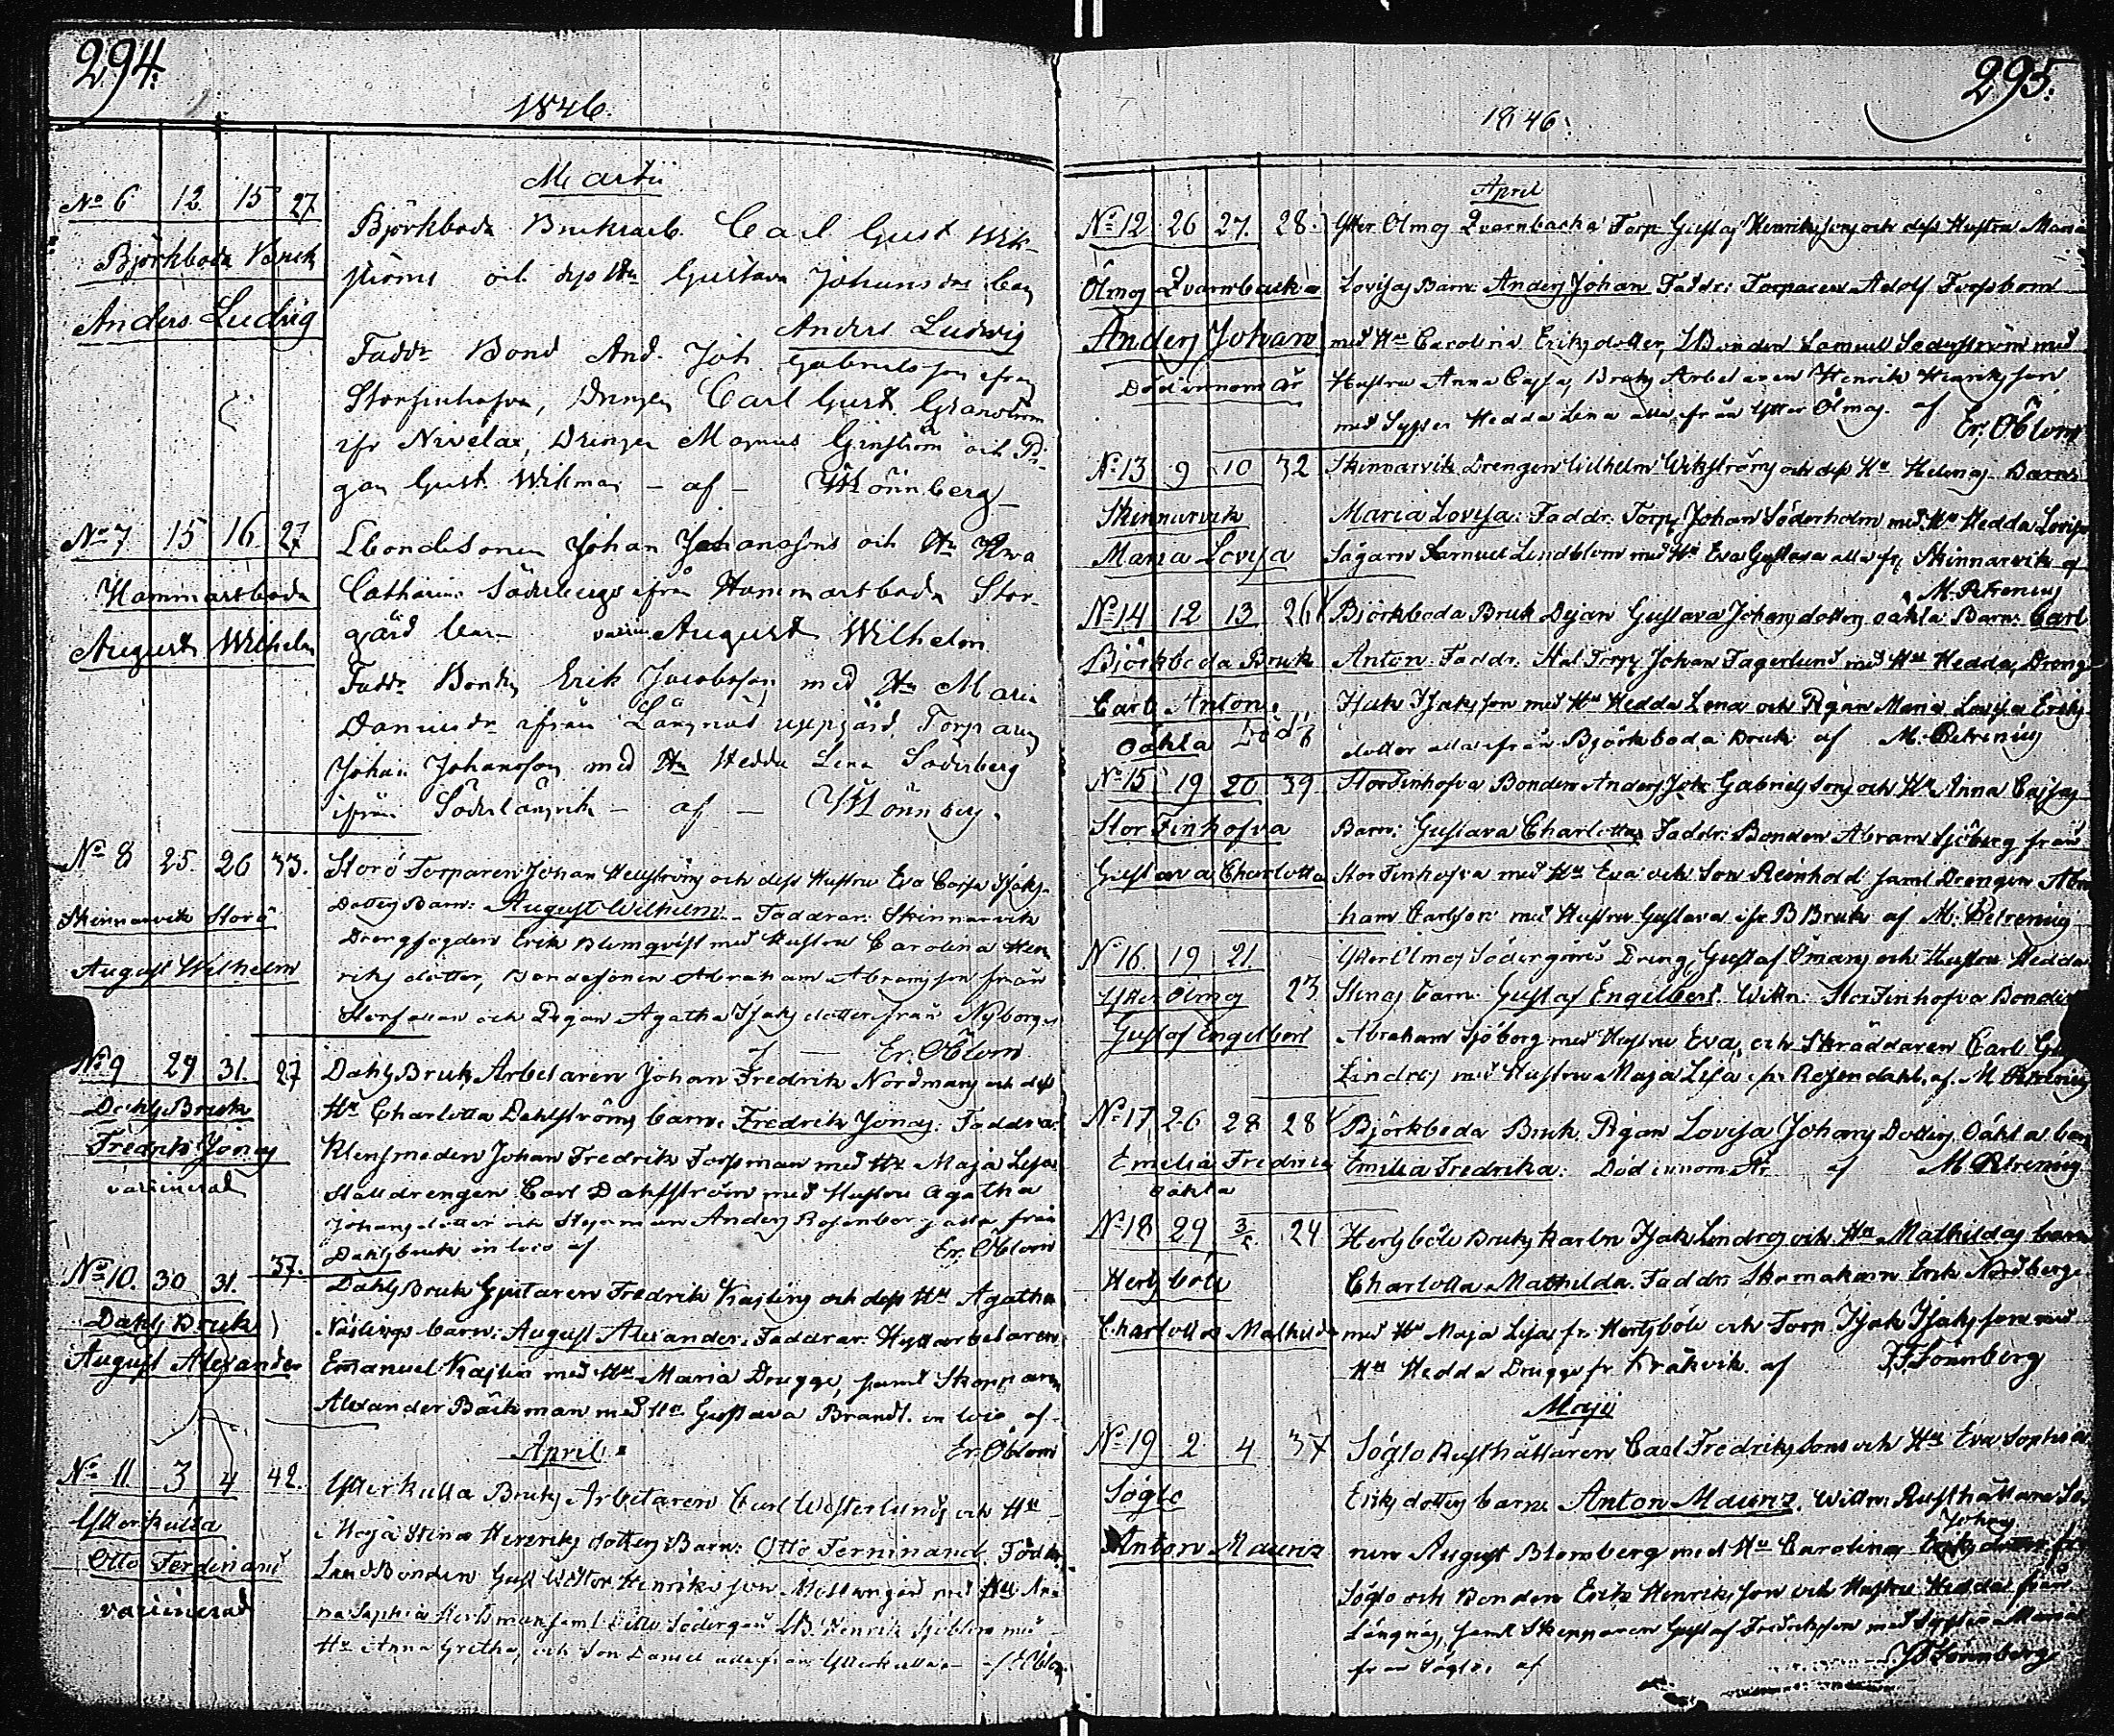 294.
1846.
Martii
No 6 12 15 27
Björkboda Bruk
Anders Ludvig
Björkboda Bruksarb. Carl Gust Wik-
ströms och dess Hu Gustava Johansdrs barn
Anders Ludvig
Faddr Bond And. Joh. Gabrielsson ifrån
Storfinhofva, Drengen Carl Gust.
ifr Nivelax, Drengen Magnus Ginström och Pi-
gan Gust. Wikman - af - Lönnberg
No 7 15 16 27
Hammarsboda
August Wilhelm
Lbondesonen Johan Johanssons och Hu Ewa
Catharina Söderbergs ifrån Hammarsboda Stor-
gård barn vaccin. August Wilhelm
Faddr Bonden Erik Jacobsson med Hu Maria
Danielsdr ifrån Långnäs uppgård, Torparen
Johan Johansson med Hu Hedda Lena Söderberg
ifrån Söderlångvik - af - Lönnberg.
No 8 25. 26 33.
Skinnarvik Storö
August Wilhelm
Storö Torparen Johan Hellströms och dess Hustru Eva Cajsa Isaks-
Dotters Barn: August Wilhelm - Faddrar: Skinnarvik
Drengfogden Erik Blomqvist med Hustru Carolina Hen
riks dotter, Bondesonen Abraham Abramsson från
och Pigan Agatha Isaks dotter från Nyborg
af — Er. Öblom
No 9 29 31. 27
Dahls Bruk
Fredrik Jonas
vaccinerad
Dahls Bruks Arbetaren Johan Fredrik Nordmans och dess
Hu Charlotta Dahlströms barn: Fredrik Jonas. Faddrar:
Klensmeden Johan Fredrik Forssman med Hu Maja Lisa
Stalldrengen Carl Dahlström med Hustru Agatha
Johans dotter och Anders Rosenberg alla från
Dahlsbruk in loco af Er. Öblom
No 10. 30 31. 37.
Dahls Bruk
August Alexander
Dahls Bruk Gjutaren Fredrik Kajlins och dess Hu Agatha
Näslings barn: August Alexander. Faddrar: Hyttarbetaren
Emanuel Kajlin med Hu Maria Drugge, samt Skepparen
Alexander Bäckman med Hu Gustava Brandt. in loco af
Er. Öblom
April
No 11. 3 4 42.
Ytterkulla
Otto Ferdinand
vaccinerad
Ytterkulla Bruks Arbetaren Carl Westerlunds och Hu
Maja Stina Henriks dotters Barn: Otto Ferninand. Faddr.
Landbonden Gust Wictor Henriksson Mellangård med Hu An-
na Sophia samt ditto Södergård LB. Henrik Sjöblom med
Hu Anna Gretha och Son Daniel alla från Ytterkulla - af Öblom
295.
1846.
April
No 12 26 27. 28.
Ölmos Qvarnbacka
Anders Johan
Död innom år
Ytter Ölmos Qvarnbacka Torp Gustaf Henrikssons och dess Hustru Maria
Lovisas Barn: Anders Johan Faddr: Torparen Adolf Forsbom
med Hu Carolina Eriksdotter, LBonden Samuel Söderström med
Hustru Anna Cajsa, Bruks Arbetaren Henrik Henriksson
med Syster Hedda Lena alla ifrån Ytter Ölmos. af
Er. Öblom
No 13 9 10 32
Skinnarvik
Maria Lovisa
Skinnarvik Drengen Wilhelm Wikströms och dess Hu Helenas Barn
Maria Lovisa: Faddr. Torp Johan Söderholm med Hu Hedda Lovisa
Sågaren Samuel Lindblom med Hu Eva Gustava alla fr. Skinnarvik af
M. Petrenius
No 14 12 13 26
Björkboda Bruk
Carl Anton.
Oäkta Död
Björkboda Bruk Dejan Gustava Johans dotters oäkta Barn: Carl
Anton. Faddr. Torp Johan Fagerlund med Hu Hedda, Dreng
Isak Isaksson med Hu Hedda Lena och Pigan Maria Lovisa Eriks-
dotter alla ifrån Björkboda Bruk af M. Petrenius
No 15 19 20 39
Stor Finhofva
Gustava Charlotta
Storfinhofva Bonden Anders Joh. Gabrielssons och Hu Anna Cajsas
Barn: Gustava Charlotta, Faddr: Bonden Abram Sjöberg från
Storfinhofva med Hu Eva och Son Reinhold samt Drengen Abra
ham Carlsson med Hustru Gustava ifr BBruk af M. Petrenius
No 16. 19 21 23
Ytter Ölmos
Gustaf Engelbert
Ytter Ölmos Södergårds Dreng Gustaf Ömans och Hustru Hedda
Stinas barn: Gustaf Engelbert. Wittn: Storfinhofva Bonden
Abraham Sjöberg med Hustru Eva, och Skräddaren Carl
Lindros med Hustru Maja Lisa ifr Rosendahl. af. M Petrenius
No 17 26 28 28
Emelia Fredrica
oäkta
Björkboda Bruk Pigan Lovisa Johans Dotters Oäkta barn
Emilia Fredrika: Död innom År. af M. Petrenius
No 18 29 3/5 24
Hertsböle
Charlotta Mathilda
Hertsböle Bruks karln Isak Lindros och Hu Mathildas barn
Charlotta Mathilda. Faddr: Skomakarn Erik Nordberg
med Hu Maja Lisa fr. Hertsböle och Torp. Isak Isaksson med
Hu Hedda Drugge fr Kråkvik. af Lönnberg
Maji
No 19 2 4 37
Söglo
Anton Maunz
Söglo Rusthållaren Carl Fredrikssons och Hu Eva Sophia
Eriks dotters barn Anton Maunz. Wittn: Rusthållare So
Johans
nen August Blomberg med Hu Carolina Eriks dotter fr
Söglo och Bonden Erik Henriksson och Hustru Hedda från
Långnäs, samt Skepparen Gustaf Fredriksson med Syster Maria
från Söglo. af Lönnberg